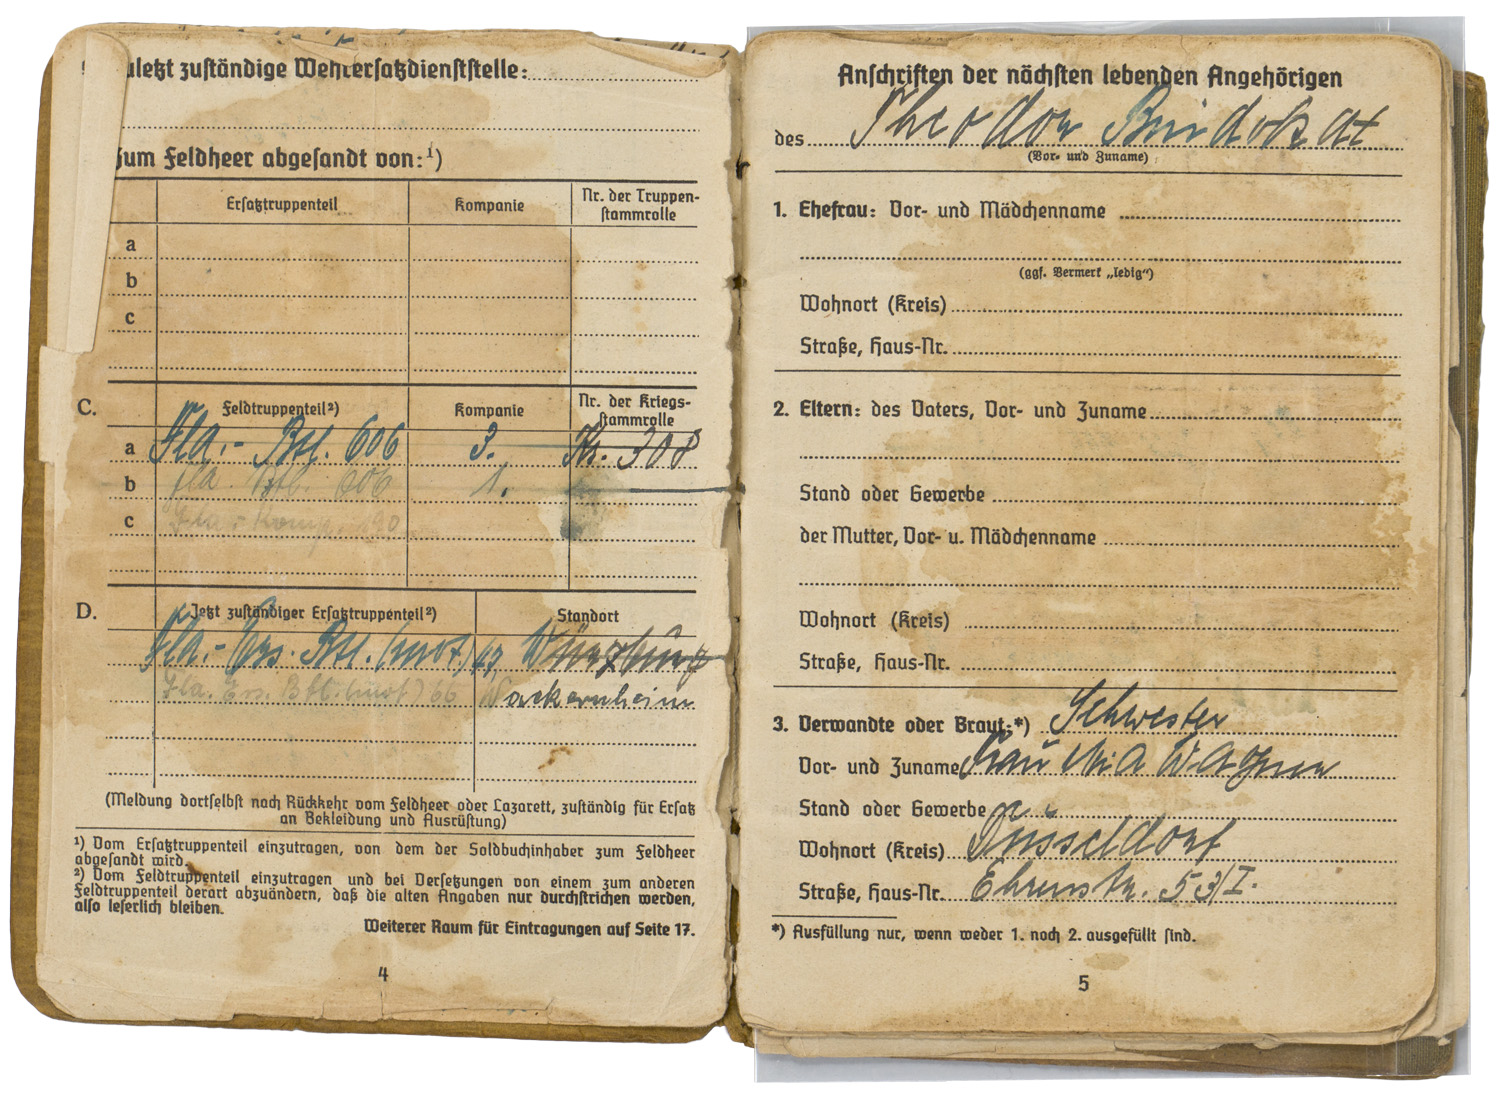 zuletzt zuständige Wehrersatzdienststelle:
Zum Feldheer abgesandt von:¹)
Ersatztruppenteil Kompanie Nr. der Truppen-
stammrolle
a
b
c
C. Feldtruppenteil²) Kompanie Nr. der Kriegs-
stammrolle
a Fla.- Btl. 606 3. Kr. 308
b Fla. Btl. 606 1.
c Fla.-Komp.
D. Jetzt zuständiger Ersatztruppenteil²) Standort
Fla.-Ers. Btl. (mot.) Würzburg
Fla. Ers. Btl. (mot) 66 Wackernheim
(Meldung dortselbst nach Rückkehr vom Feldheer oder Lazarett, zuständig für Ersatz
an Bekleidung und Ausrüstung)
¹) Vom Ersatztruppenteil einzutragen, von dem der Soldbuchinhaber zum Feldheer
abgesandt wird.
²) Vom Feldtruppenteil einzutragen und bei Versetzungen von einem zum anderen
Feldtruppenteil derart abzuändern, daß die alten Angaben nur durchstrichen werden,
also leserlich bleiben.
Weiterer Raum für Eintragungen auf Seite 17.
4
Anschriften der nächsten lebenden Angehörigen
des Theodor
(Vor- und Zuname)
1. Ehefrau: Vor- und Mädchenname
(ggf. Vermerk „ledig“)
Wohnort (Kreis)
Straße, Haus-Nr.
2. Eltern: des Vaters, Vor- und Zuname
Stand oder Gewerbe
der Mutter, Vor- u. Mädchenname
Wohnort (Kreis)
Straße, Haus-Nr.
3. Verwandte oder Braut:*) Schwester
Vor- und Zuname Frau Wagner
Stand oder Gewerbe
Wohnort (Kreis) Düsseldorf
Straße, Haus-Nr. Ehrenstr. 53/I.
*) Ausfüllung nur, wenn weder 1. noch 2. ausgefüllt sind.
5